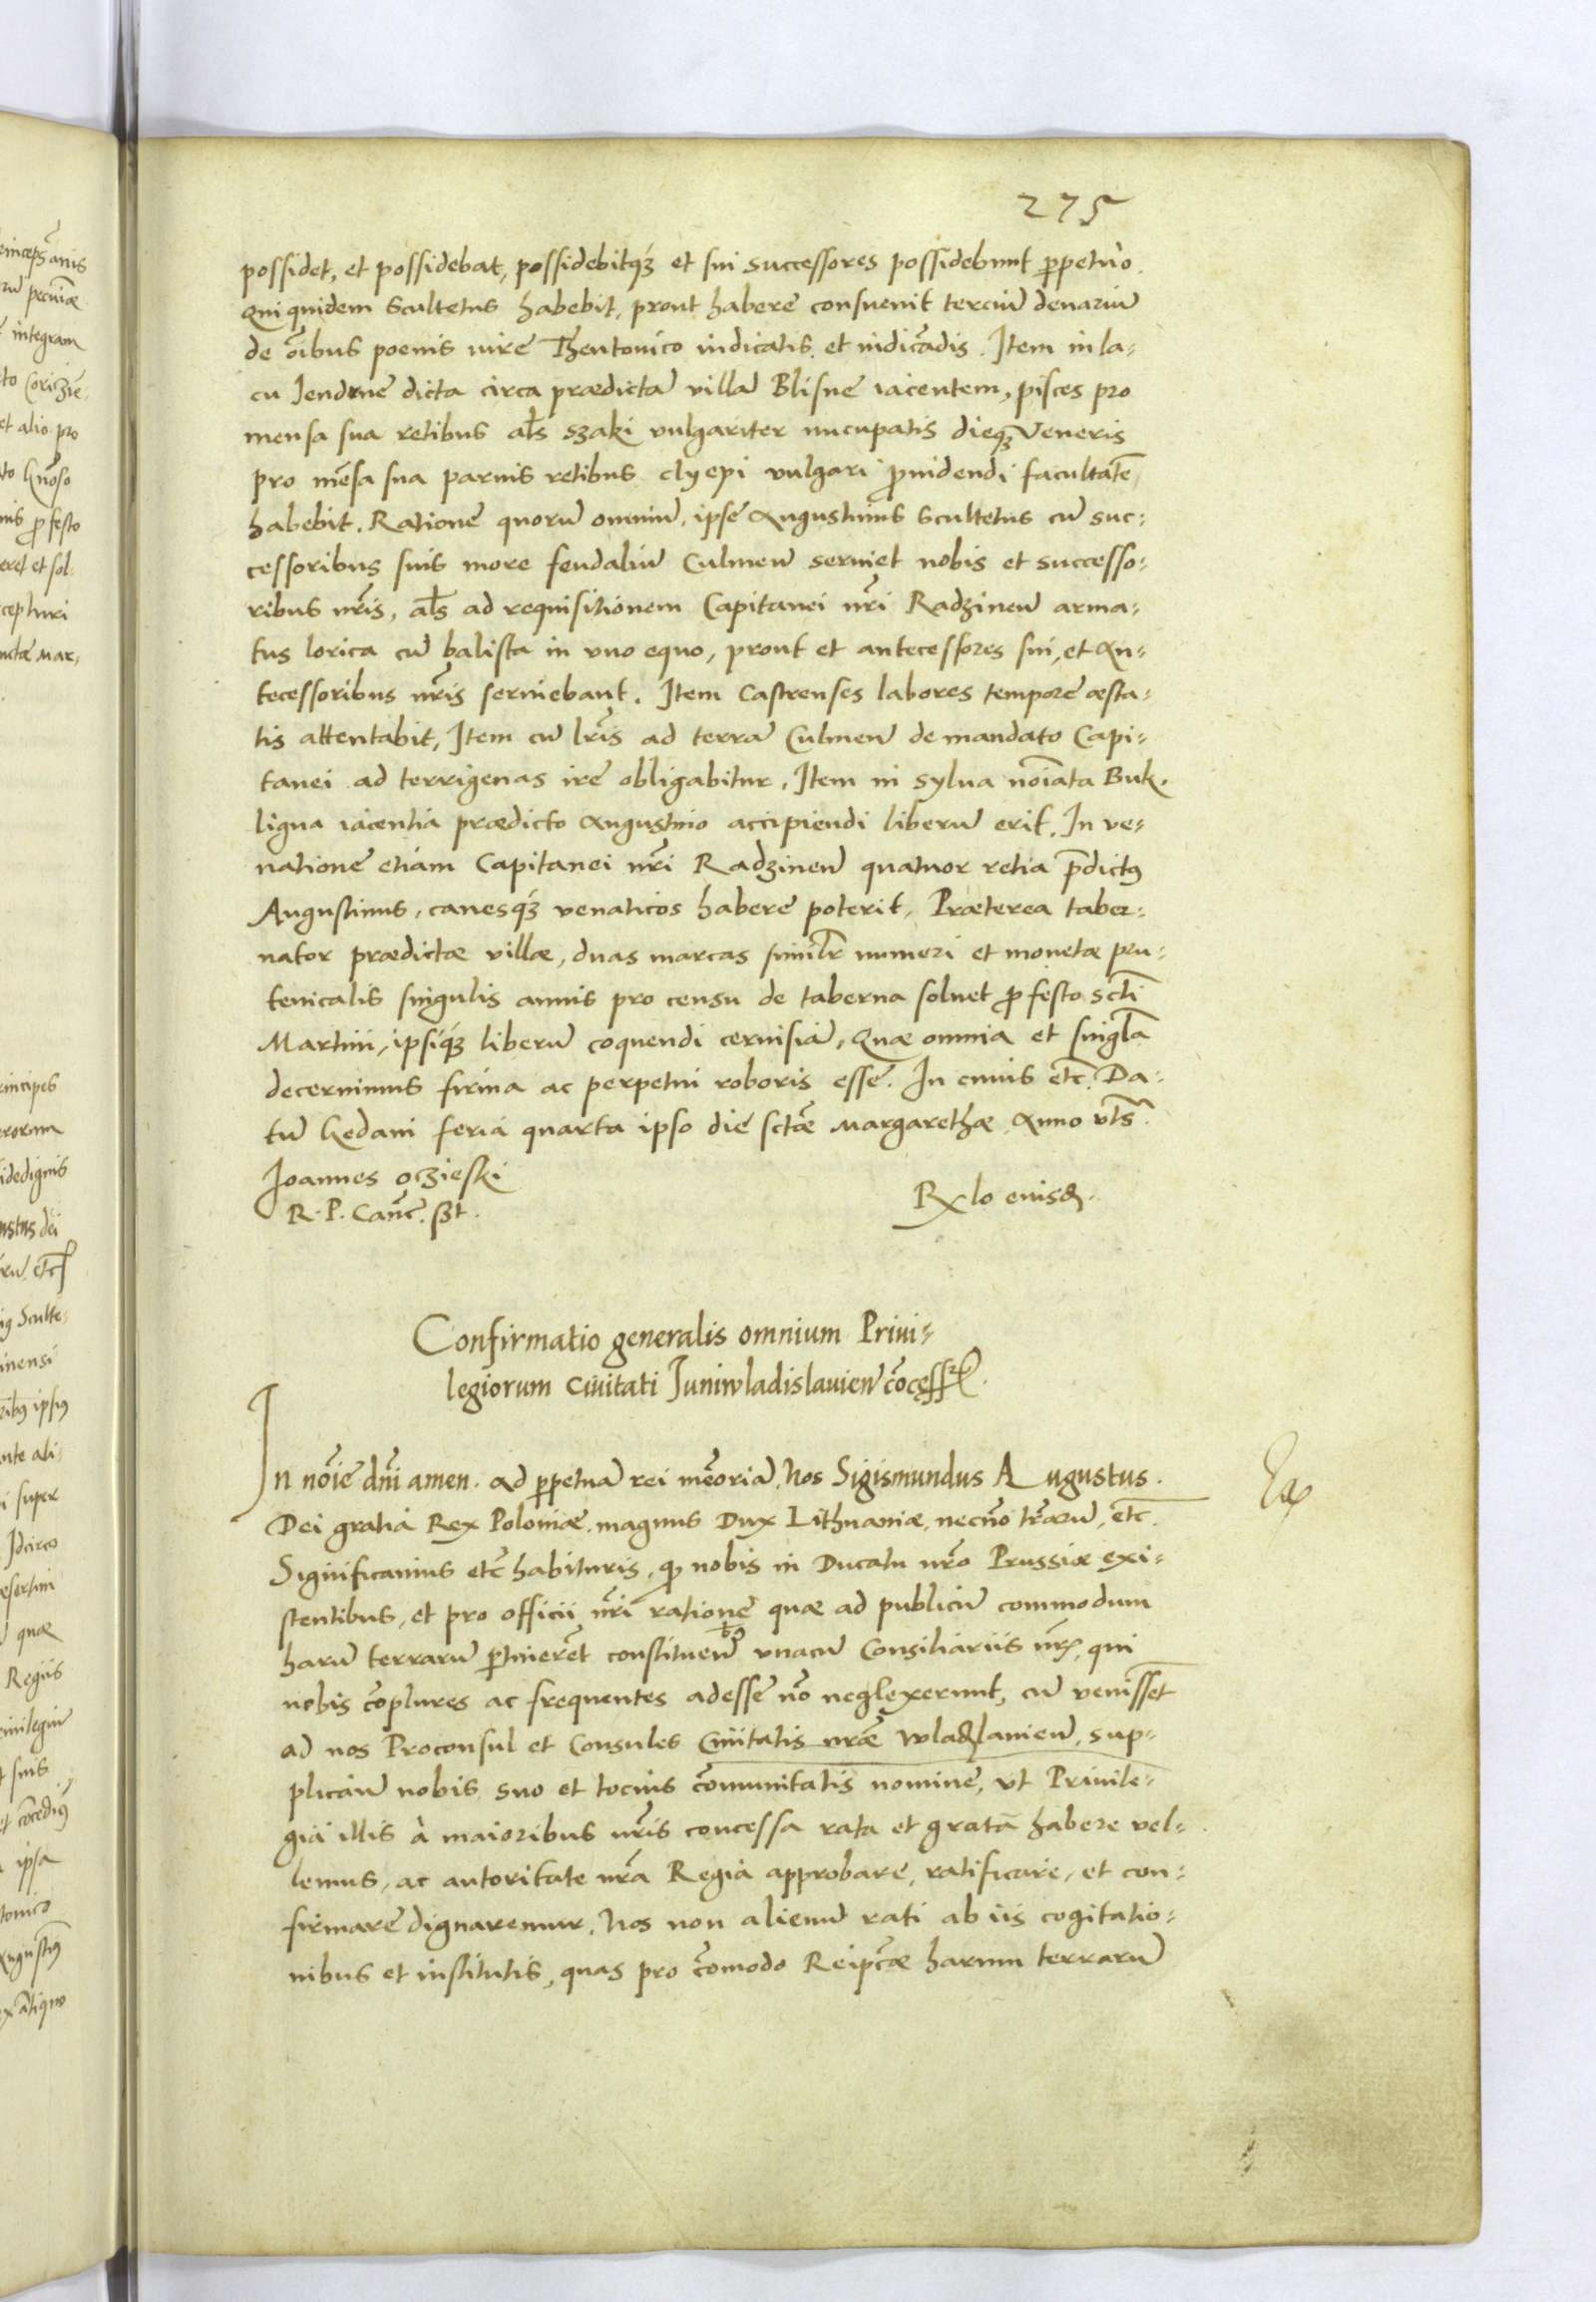 275
possidet, et possidebat, possidebitqꝫ et sui successores possidebunt ꝑpetuo.
Qui quidem Scultetus habebit, prout habere consuevit terciū denariū
de oībus poenis iure Theutonico iudicatis et iudicādis. Item in la-
cu Jendrne dicta circa prædictā villā Blisne iacentem, pisces pro
mensa sua retibus als szaki vulgariter nucupatis dieqꝫ Veneris
pro mēsa sua parvis retibus clyepi vulgari ꝓuidendi facultatē
habebit. Ratione quorū omniū, ipse Augustinus Scultetus cū suc-
cessoribus suis more feudaliū Culmeñ serviet nobis et successo-
ribus nr̄is, als ad requisitionem Capitanei nr̄i Radzineñ arma-
tus lorica cū balista in vno equo, prout et antecessores sui, et An-
tecessoribus nr̄is serviebant. Item Castrenses labores tempore æsta-
tis attentabit, Item cū lr̄is ad terrā Culmeñ de mandato Capi-
tanei ad terrigenas ire obligabitur, Item in sylva noīata Buk.
ligna iacentia prædicto Augustino accipiendi liberū erit. In ve-
natione etiam Capitanei nr̄i Radzineñ quatuor retia p̄dictꝰ
Augustinus, canesqꝫ venaticos habere poterit, Præterea taber-
nator prædictæ villæ, duas marcas similr̄ numeri et monetæ pru-
tenicalis singulis annis pro censu de taberna solvet ꝓ festo sctī
Martini, ipsiqꝫ liberū coquendi cervisiā, Quæ omnia et singl̄a
decernimus firma ac perpetui roboris esse. In cuius etc. Da-
tū Gedani feria quarta ipso die sctæ Margarethæ Anno vts̄.
Joannes oczieski
R. P. Canc. sst.
Rx lo eiusd.
Confirmatio generalis omnium Privi-
legiorum civitati Juniwladislavieñ cōcessꝝ.
In noīe dn̄i amen. ad ꝑpetuā rei mēoriā. Nos Sigismundus Augustus.
Dei gratia Rex Poloniæ. magnus Dux Lithuaniæ, necnō tr̄arū, etc.
Significamus etc habituris, qꝫ nobis in Ducatu nr̄o Prussiæ exi-
stentibus, et pro officii nr̄i ratione quæ ad publicū commodum
harū terrarū ꝑtinerēt constitueñ bꝰ unacū Consiliariis nr̄is, qui
nobis cōplures ac frequentes adesse nō neglexerunt, cū venissēt
ad nos Proconsul et Consules Civitatis nr̄æ wladslavieñ, sup-
plicārū nobis suo et tocius cōmunitatis nomine, ut Privile-
gia illis à maioribus nr̄is concessa rata et grata habere vel-
lemus, ac autoritate nr̄a Regia approbare, ratificare, et con-
firmare dignaremur. Nos non alienū rati ab iis cogitatio-
nibus et institutis, quas pro cōmodo Reipcæ harum terrarū